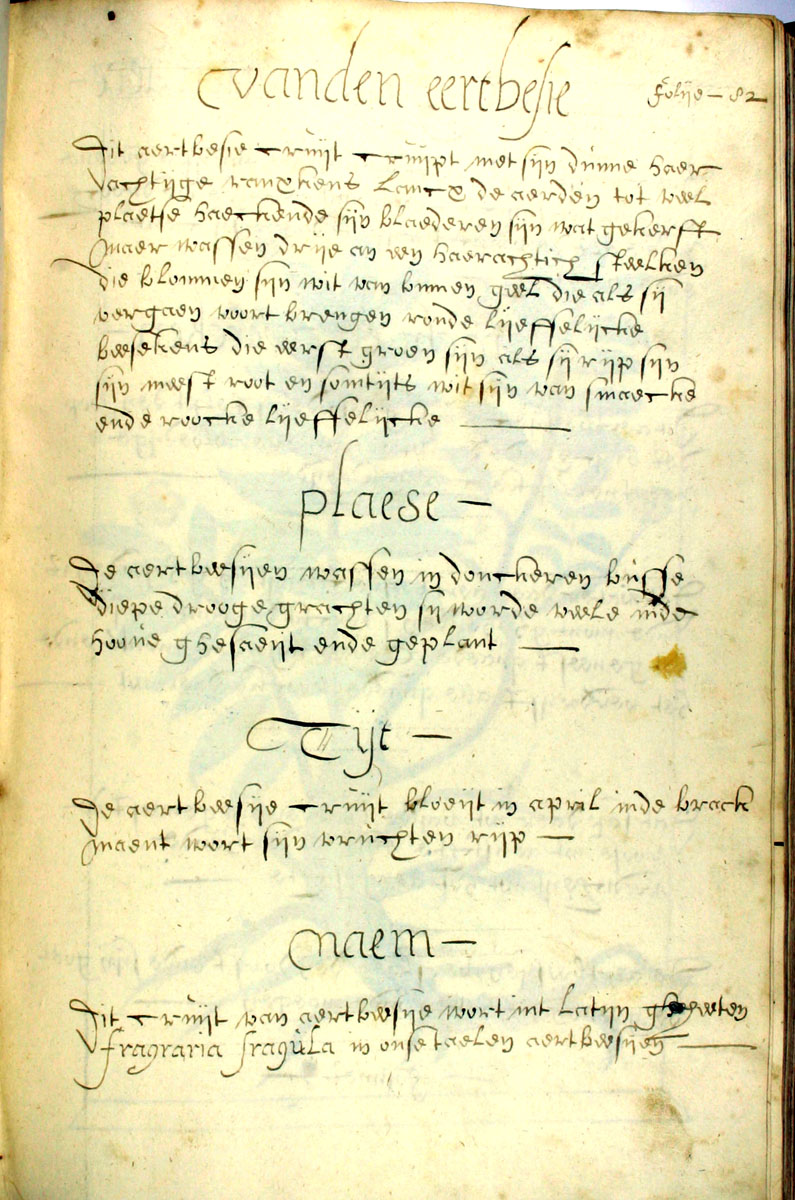 vanden eertbesie
folije – 82
Dit aertbesie cruijt cruijpt met sijn dunne haer
achtijge ranxkens lancx de aerden tot veel
plaetse haeckende sijn blaederen sijn wat gekerft
maer wassen drije an een haerachtich steelken
die blommen sijn wit van binnen geel die als sij
vergaen voort brengen ronde lijeffelijcke
beesekens die eerst groen sijn als sij rijp sijn
sijn meest root en somtijts wit sijn van smaecke
ende roocke lijeffelijcke
plaese –
De aertbeesijen wassen in donckeren busse
diepe drooge grachten sij worde veele inde
hoove ghesaeijt ende geplant
Tijt –
De aertbeesije cruijt bloeijt in april inde brack
maent wort sijn vruchten rijp –
naem –
Dit cruijt van aertbeesije wort int latijn gheheeten
fragraria fragula in onse taelen aertbeesijen